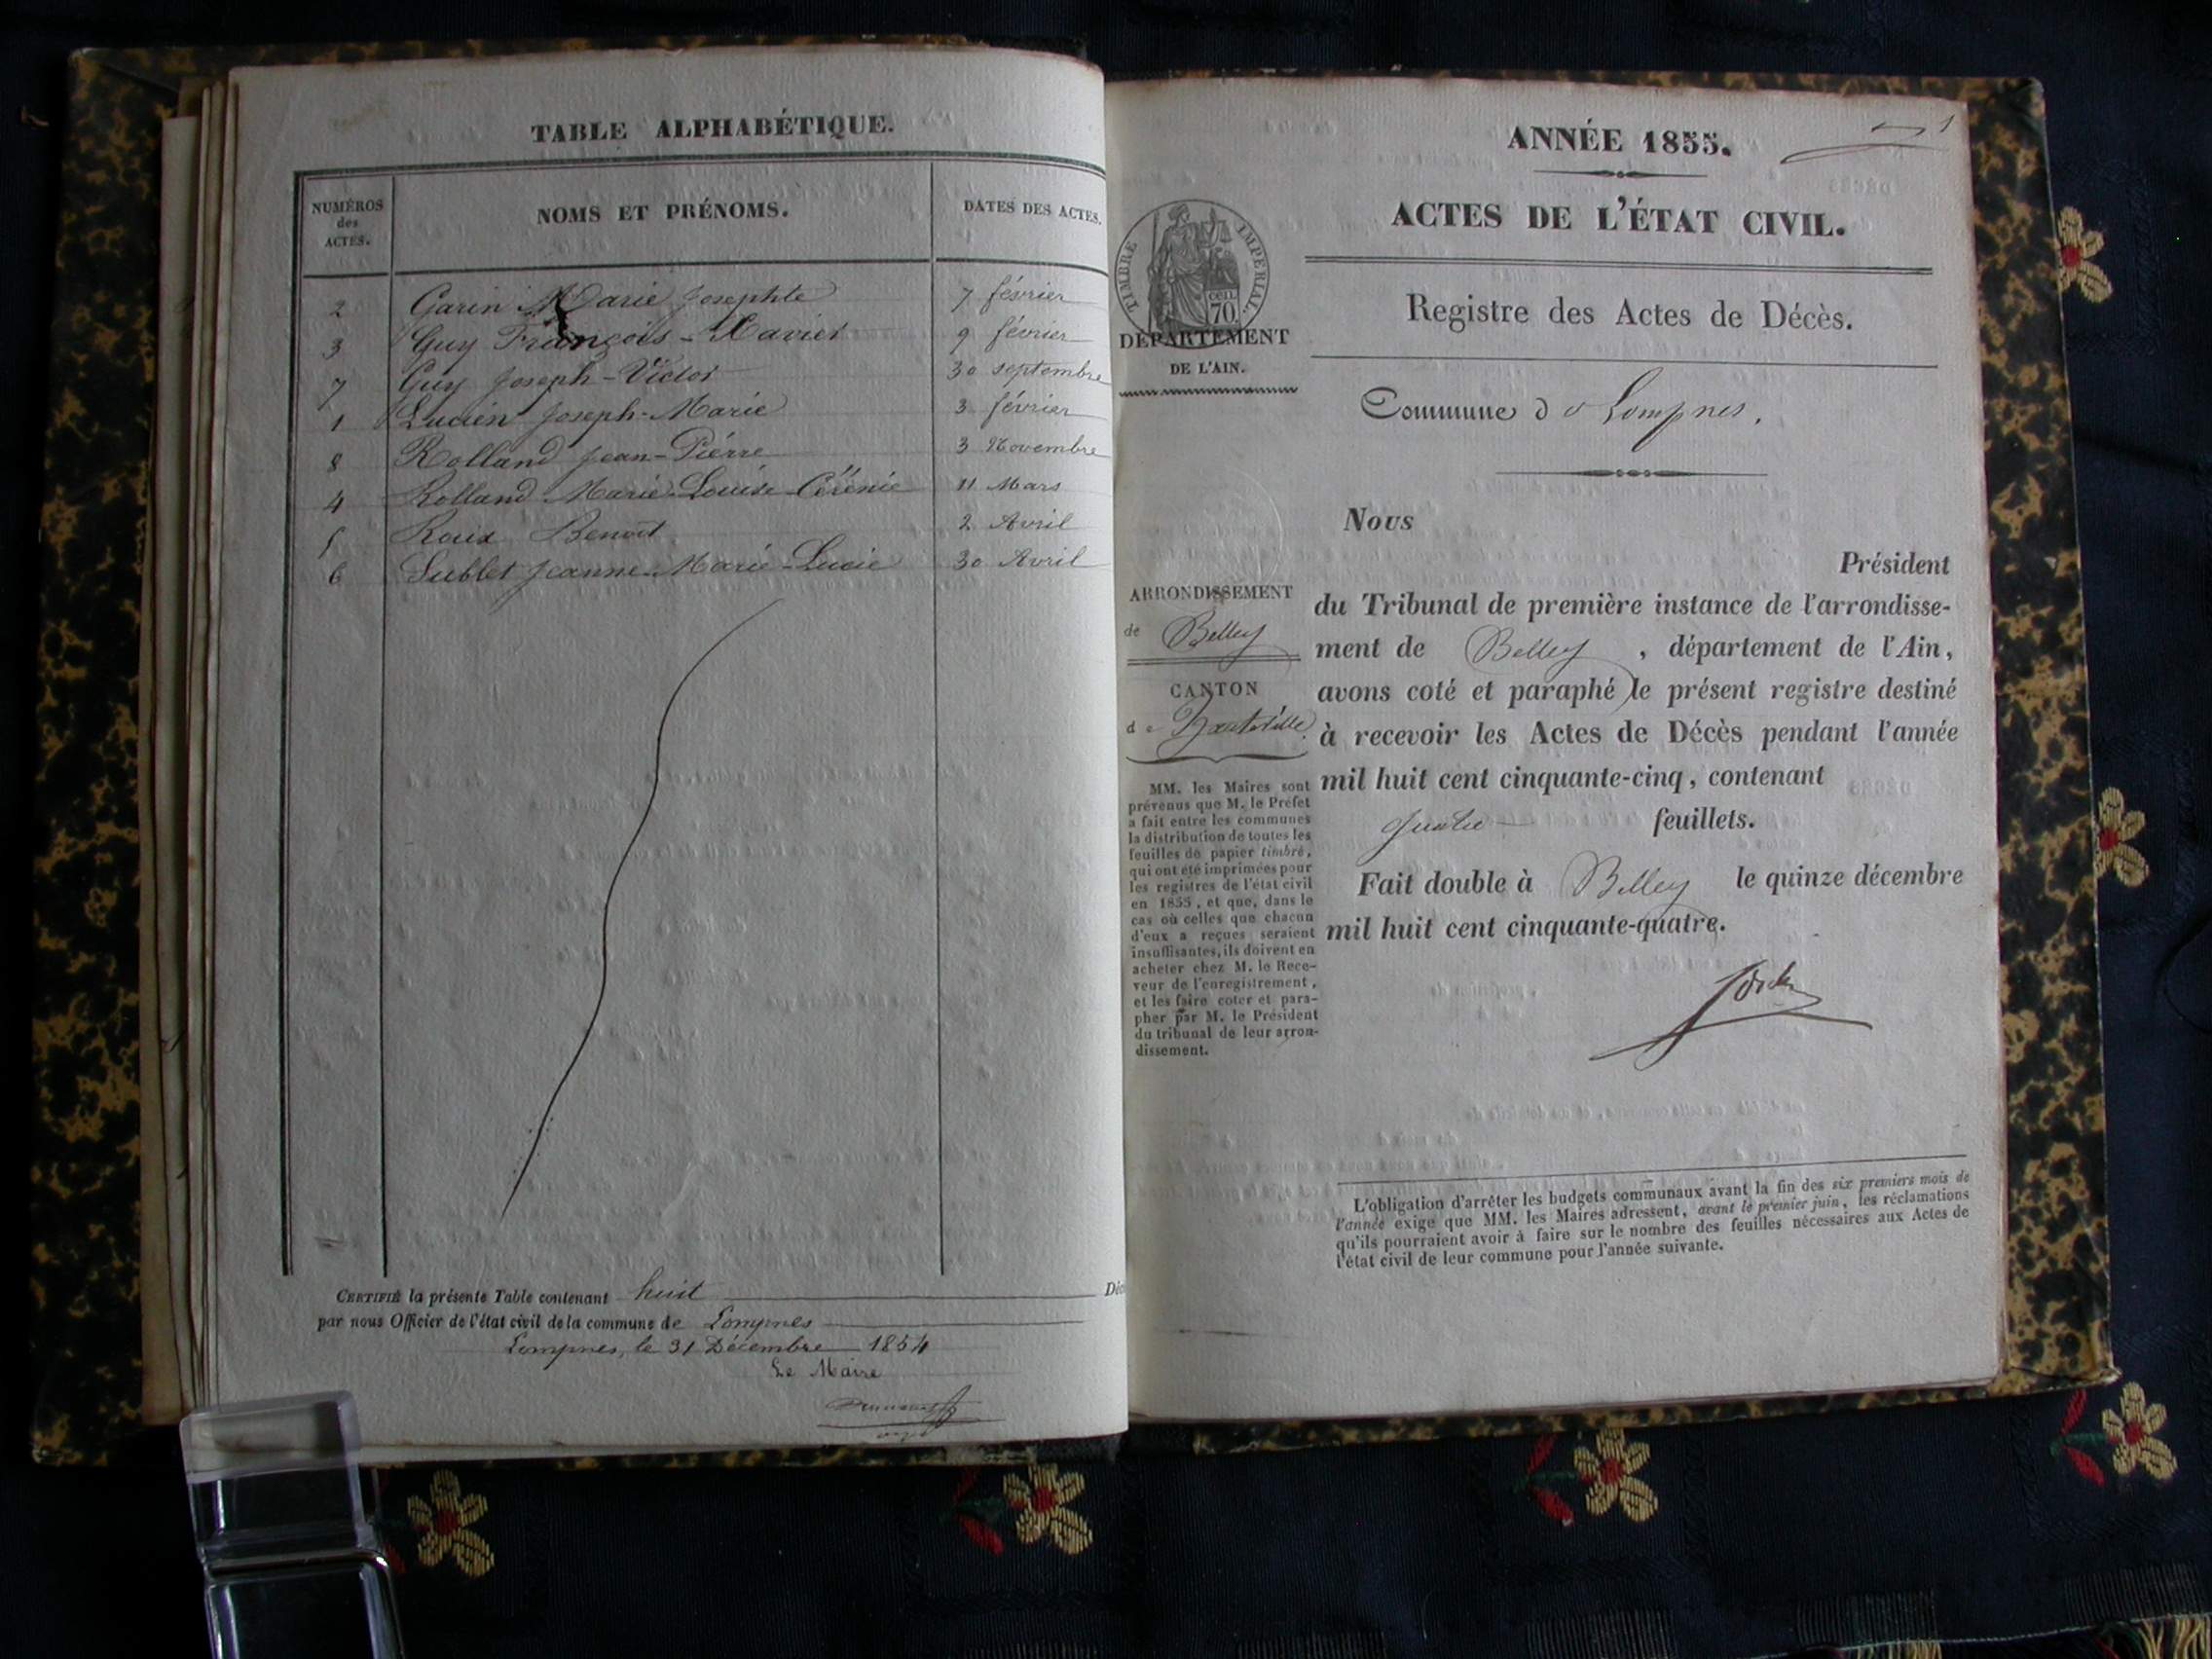 TABLE ALPHABÉTIQUE.
NUMÉROS
des
ACTES.
NOMS ET PRÉNOMS.
DATES DES ACTES.
2 Garin Marie Josephte 7 février
3 Guy François-Xavier 9 février
7 Guy Joseph-Victor 30 septembre
1 Lucien Joseph-Marie 3 février
8 Rolland Jean-Piérre 3 Novembre
4 Rolland Marie-Louise-Cérénie 11 Mars
5 Roux Benoît 2 Avril
6 Sublet Jeanne-Marie-Lucie 30 Avril
CERTIFIÉ la présente Table contenant huit Déc
par nous Officier de l'état civil de la commune de Lompnes
Lompnes, le 31 Décembre 1854
Le Maire
1
ANNÉE 1855.
ACTES DE L'ÉTAT CIVIL.
TIMBRE IMPÉRIAL
CEN.
70.
DÉPARTEMENT
DE L'AIN.
Registre des Actes de Décès.
Commune de Lompnes.
ARRONDISSEMENT
de Belley
CANTON
de Hauteville
MM. les Maires sont
prévenus que M. le Préfet
a fait entre les communes
la distribution de toutes les
feuilles de papier timbré,
qui ont été imprimées pour
les registres de l'état civil
en 1855, et que, dans le
cas où celles que chacun
d'eux a reçues seraient
insuffisantes, ils doivent en
acheter chez M. le Rece-
veur de l'enregistrement,
et les faire coter et para-
pher par M. le Président
du tribunal de leur arron-
dissement.
Nous
Président
du Tribunal de première instance de l'arrondisse-
ment de Belley, département de l'Ain,
avons coté et paraphé le présent registre destiné
à recevoir les Actes de Décès pendant l'année
mil huit cent cinquante-cinq, contenant
quatre feuillets.
Fait double à Belley le quinze décembre
mil huit cent cinquante-quatre.
L'obligation d'arrêter les budgets communaux avant la fin des six premiers mois de
l'année exige que MM. les Maires adressent, avant le premier juin, les réclamations
qu'ils pourraient avoir à faire sur le nombre des feuilles nécessaires aux Actes de
l'état civil de leur commune pour l'année suivante.